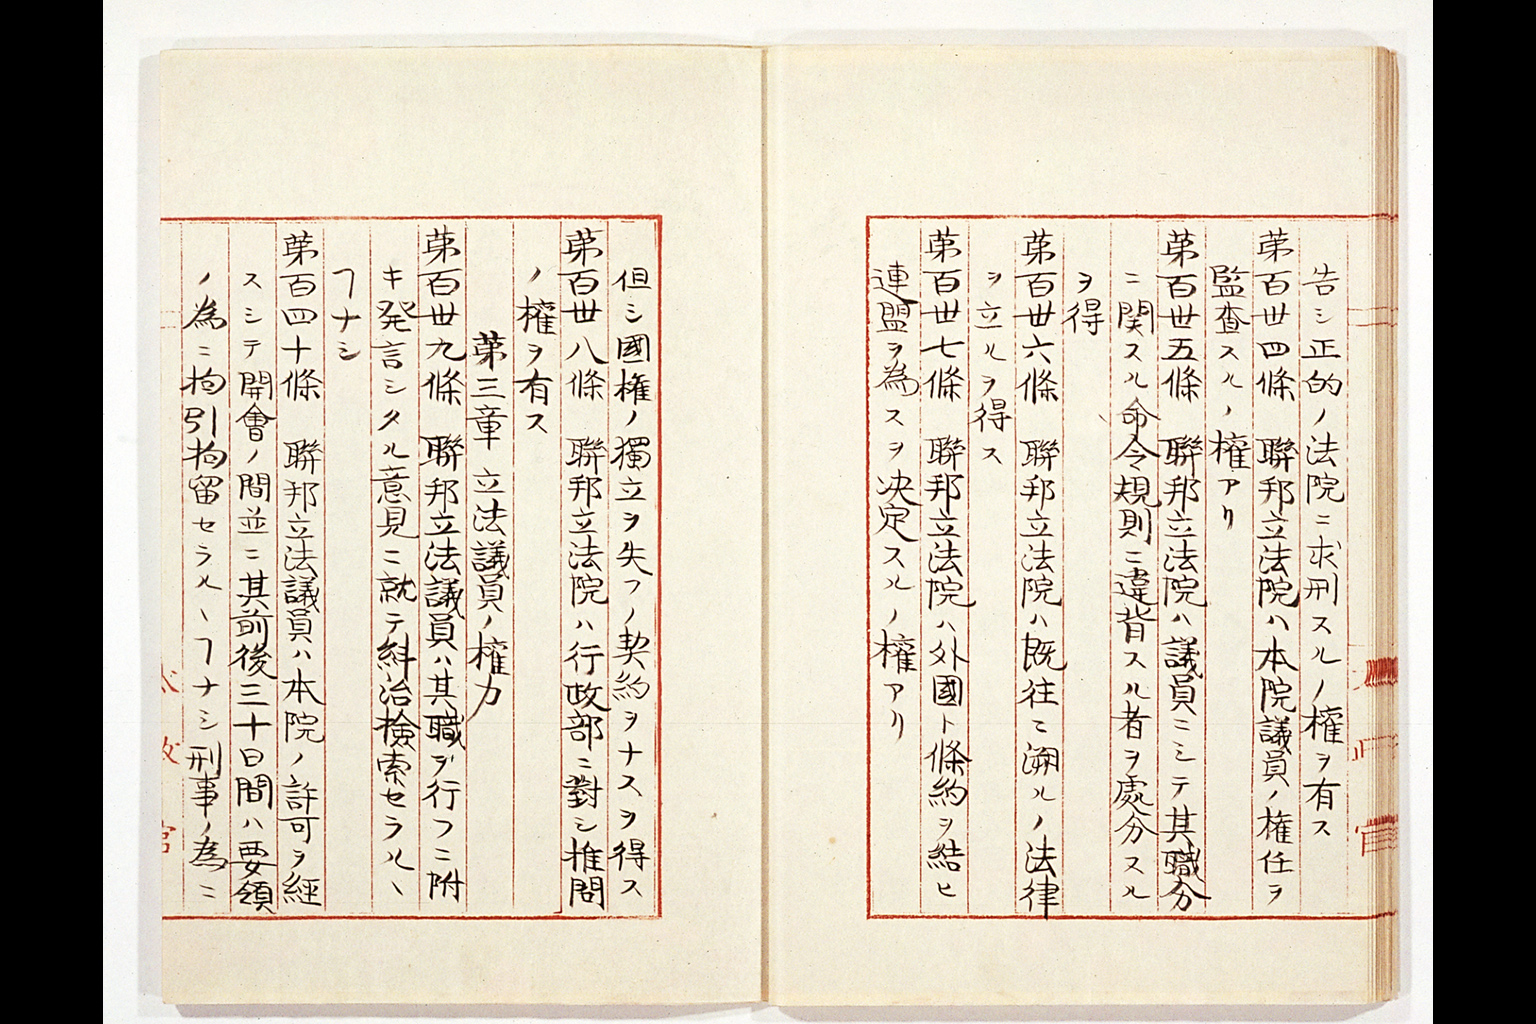 告シ正的ノ法院ニ求刑スルノ權ヲ有ス
第百丗四條　聯邦立法院ハ本院議員ノ権任ヲ
監査スルノ權アリ
第百丗五條　聯邦立法院ハ議員ニシテ其職分
ニ関スル命令規則ニ違背スル者ヲ處分スル
ヲ得
第百丗六條　聯邦立法院ハ既往ニ溯ルノ法律
ヲ立ルヲ得ス
第百丗七條　聯邦立法院ハ外國ト條約ヲ結ヒ
連盟ヲ為スヲ决定スルノ權アリ
但シ國権ノ獨立ヲ失フノ契約ヲナスヲ得ス
第百丗八條　聯邦立法院ハ行政部ニ對シ推問
ノ權ヲ有ス
第三章　立法議員ノ權力
第百丗九條　聯邦立法議員ハ其職ヲ行フニ附
キ発言シタル意見ニ就テ糾治検索セラルヽ
ヿナシ
第百四十條　聯邦立法議員ハ本院ノ許可ヲ經
スシテ開會ノ間並ニ其前後三十日間ハ要領
ノ為ニ拘引拘留セラルヽヿナシ刑事ノ為ニ